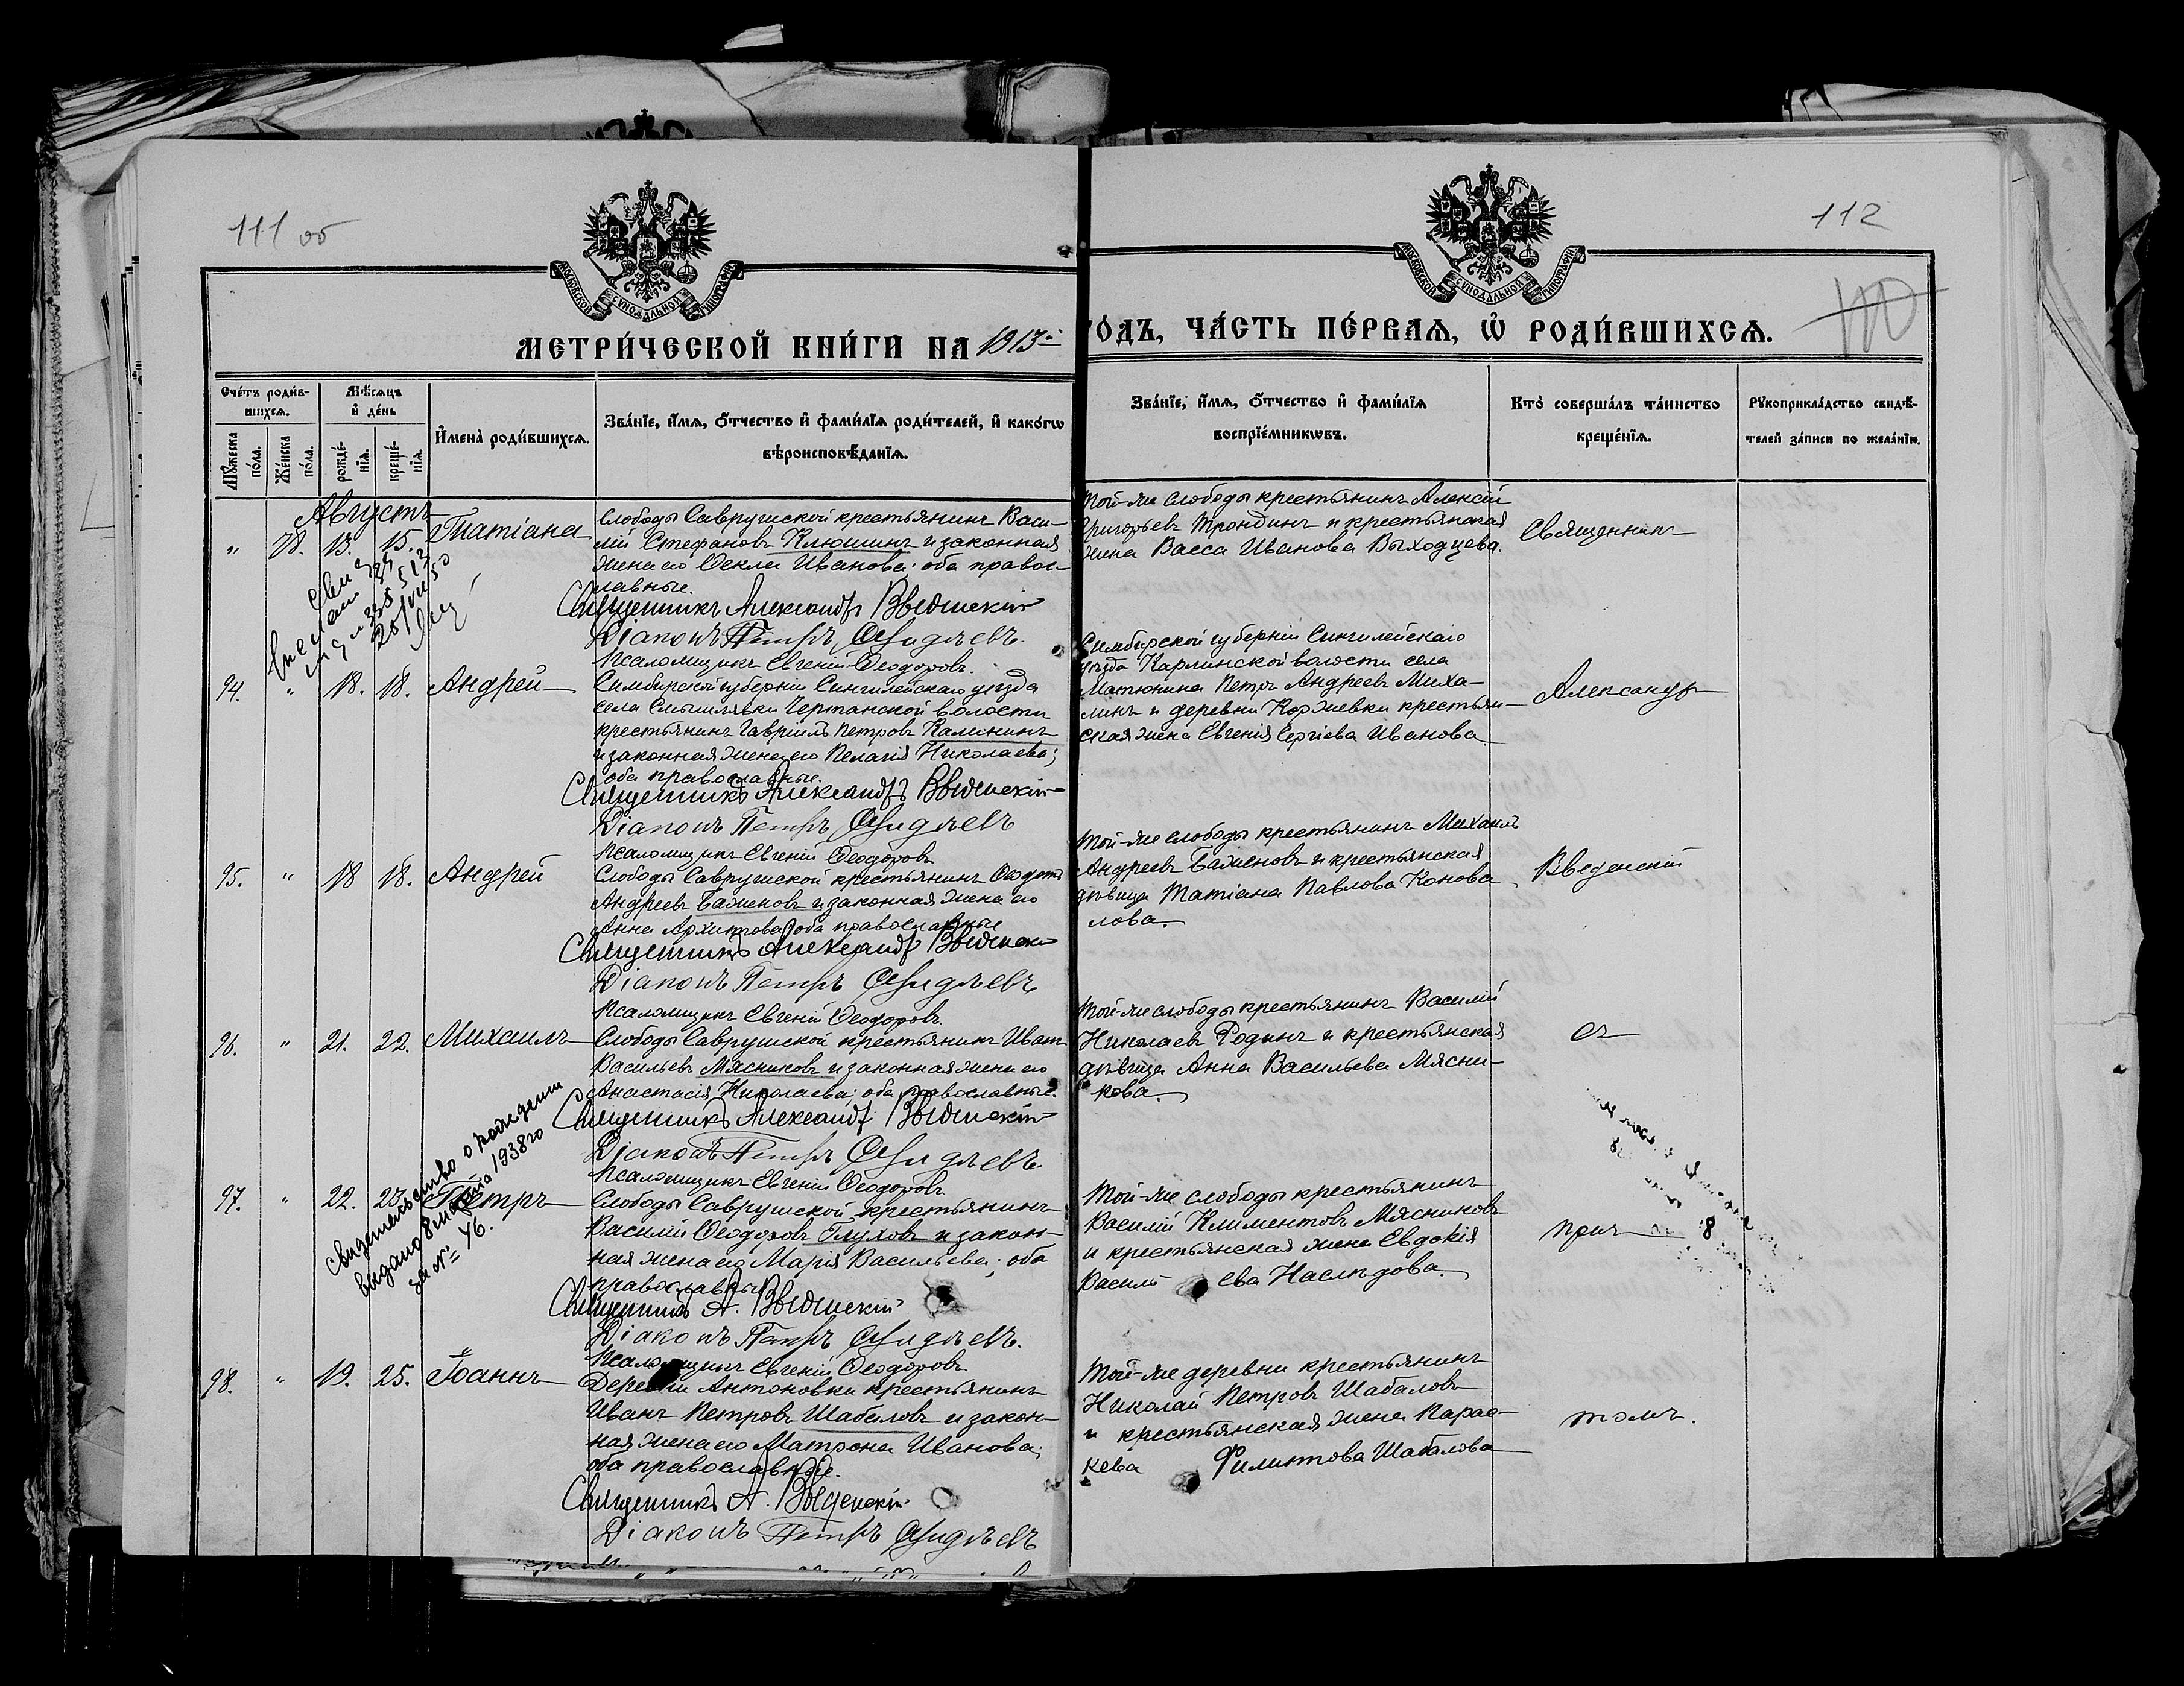 111 об
112
МОСКОВСКОЙ СУНОДАЛЬНОЙ ТИПОГРАФІИ
МОСКОВСКОЙ СУНОДАЛЬНОЙ ТИПОГРАФІИ
МЕТРИ́ЧЕСКОЙ КНИ́ГИ НА 1913й
ГО́ДЪ, ЧА́СТЬ ПЕ́РВАѦ, Ѡ РОДИ́ВШИХСѦ.
Сче́тъ роди́в-
шихсѧ.
Мѹ́жеска по́ла.
Же́нска по́ла.
Мѣ́сѧцъ
и́ де́нь
рожде́-
нїѧ.
креще́-
нїѧ.
И҆мена̀ роди́вшихсѧ.
Зва́нїе, и҆́мѧ, ѻ҆́тчество и҆ фами́лїѧ роди́телей, и҆ како́гѡ
вѣроисповѣ́данїѧ.
Зва́нїе, и҆́мѧ, ѻ҆́тчество и҆ фами́лїѧ
воспрїе́мникѡвъ.
Кто̀ соверша́лъ та́инство
креще́нїѧ.
Рѹкоприкла́дство свидѣ́-
телей за́писи по жела́нїю.
Августъ
" 78. 13. 15. Татіана
Слободы Саврушской крестьянинъ Васи-
лій Стефановъ Клюшинъ и законная
жена его Ѳекла Иванова; оба правос-
лавные.
Священникъ Александръ Введенскій
Діаконъ Петръ
Псаломщикъ Евгеній Ѳеодоровъ.
Той-же слободы крестьянинъ Алексѣй
Григорьевъ Трондинъ и крестьянская
жена Васса Иванова Выходцева.
Священникъ
94. " 18. 18. Андрей
Симбирской губерніи Сингилейскаго уѣзда
села Смышлявки Чертанской волости
крестьянинъ Гавріилъ Петровъ Калининъ
и законная жена его Пелагія Николаева;
оба православные.
Священникъ Александръ Введенскій
Діаконъ Петръ
Псаломщикъ Евгеній Ѳеодоровъ
Симбирской губерніи Сингилейскаго
уѣзда Карлинской волости села
Матюнина Петръ Андреевъ Миха-
линъ и деревни Коржевки крестьян-
ская жена Евгенія Сергіева Иванова.
Александръ
95. " 18 18. Андрей
Слободы Саврушской крестьянинъ Ѳеодотъ
Андреевъ Баженовъ и законная жена его
Анна Архипова; оба православные
Священникъ Александръ Введенскій
Діаконъ Петръ
Псаломщикъ Евгеній Ѳеодоровъ.
Той-же слободы крестьянинъ Михаилъ
Андреевъ Баженовъ и крестьянская
дѣвица Татіана Павлова Конова-
лова.
Введенскій
96. " 21. 22. Михаилъ
Слободы Саврушской крестьянинъ Иванъ
Васильевъ Мясниковъ и законная жена его
Анастасія Николаева; оба православные.
Священникъ Александръ Введенскій
Діаконъ Петръ
Псаломщикъ Евгеній Ѳеодоровъ
Той-же слободы крестьянинъ Василій
Николаевъ Родинъ и крестьянская
дѣвица Анна Васильева Мясни-
кова.
съ
97. " 22. 23. Петръ
Свидетельство о рождении
выдано 8 марта 1938 го
за № 46.
Слободы Саврушской крестьянинъ
Василій Ѳеодоровъ Глуховъ и закон-
ная жена его Марія Васильева; оба
православные
Священникъ А. Введенскій
Діаконъ Петръ
Псаломщикъ Евгеній Ѳеодоровъ
Той-же слободы крестьянинъ
Василій Климентовъ Мясниковъ
и крестьянская жена Евдокія
Василь ева Наслѣдова.
прич
98. " 19. 25. Іоаннъ
Деревни Антоновки крестьянинъ
Иванъ Петровъ Шабаловъ и закон-
ная жена его Матрона Иванова;
оба православные.
Священникъ А. Введенскій
Діаконъ Петръ
Той-же деревни крестьянинъ
Николай Петровъ Шабаловъ
и крестьянская жена Парас-
кева Филиппова Шабалова
томъ.